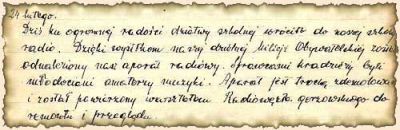 24 lutego.
Dziś ku ogromnej radości dziatwy szkolnej wróciło do naszej szkoły
radio. Dzięki wysiłkom naszej dzielnej Milicji Obywatelskiej został
odnaleziony nasz aparat radiowy. Sprawcami kradzieży byli
młodociani amatorzy muzyki. Aparat jest trochę zdemolowany
i został powierzony warsztatom Radiowęzła gorzowskiego do
remontu i przeglądu.